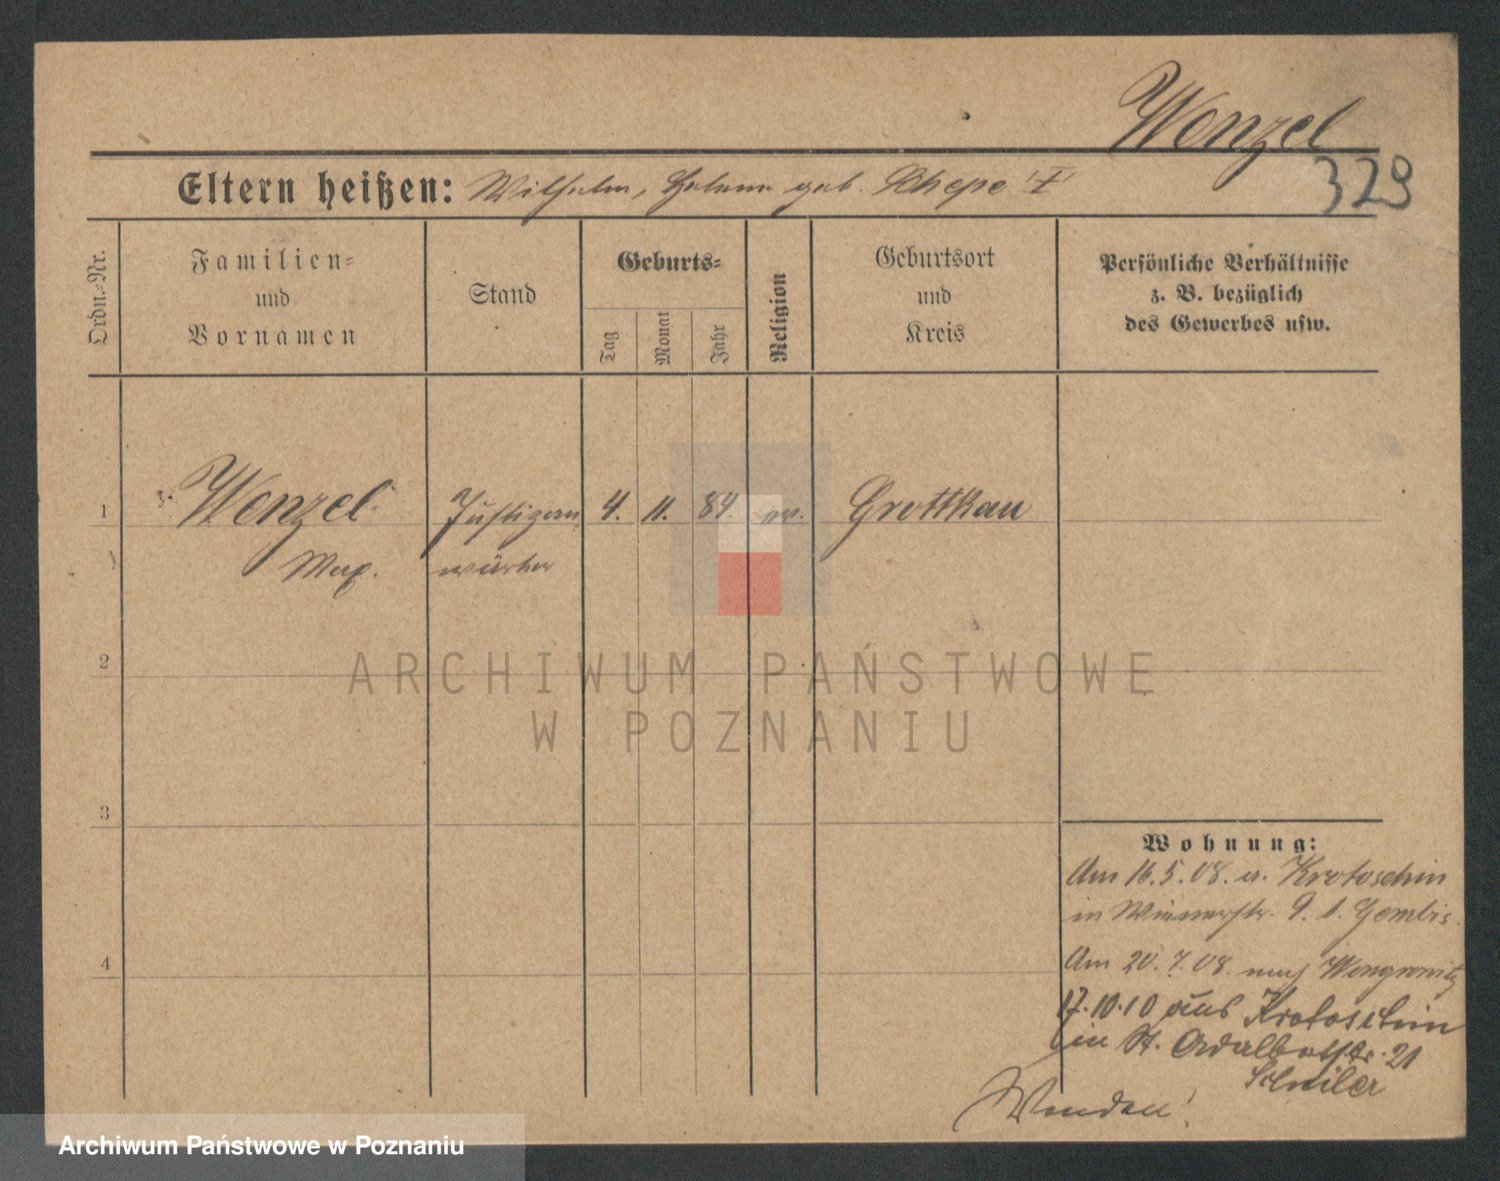 Wenzel
329
Eltern heißen: Wilhelm, Helene geb. Schepe
Ordn.-Nr.
Familien-
und
Vornamen
Stand
Geburts-
Tag
Monat
Jahr
Religion
Geburtsort
und
Kreis
Persönliche Verhältnisse
z. B. bezüglich
des Gewerbes usw.
1 Wenzel Justizan 4. 11. 84. ev. Grottkau
Max. wärter
2
ARCHIWUM PAŃSTWOWE
W POZNANIU
3
Wohnung:
Am 16.5.08. a. Krotoschin
in Wienerstr. 9. b. Gembis
4
Am 20.7.08. nach Wongrowitz
17.10.10 aus Krotoschin
in St. Adalbertstr. 21
Wenden!
Archiwum Państwowe w Poznaniu